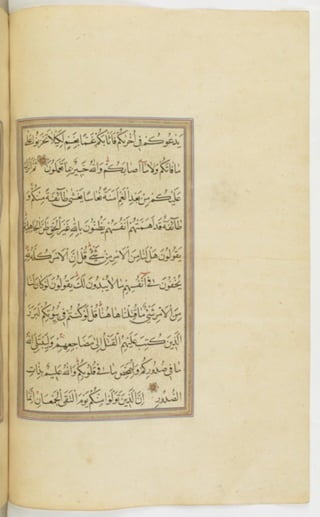 يَدْعُوكُمْ فِي أُخْرَىٰكُمْ فَأَثَابَكُمْ غَمًّا بِغَمٍّ لِكَيْلَا تَحْزَنُوا عَلَىٰ
مَا فَاتَكُمْ وَلَا مَا أَصَابَكُمْ وَاللَّهُ خَبِيرٌ بِمَا تَعْمَلُونَ ثُمَّ أَنْزَلَ
عَلَيْكُمْ مِنْ بَعْدِ الْغَمِّ أَمَنَةً نُعَاسًا يَغْشَىٰ طَائِفَةً مِنْكُمْ وَ
طَائِفَةٌ قَدْ أَهَمَّتْهُمْ أَنْفُسُهُمْ يَظُنُّونَ بِاللَّهِ غَيْرَ الْحَقِّ ظَنَّ الْجَاهِلِيَّةِ
يَقُولُونَ هَلْ لَنَا مِنَ الْأَمْرِ مِنْ شَيْءٍ قُلْ إِنَّ الْأَمْرَ كُلَّهُ لِلَّهِ
يُخْفُونَ فِي أَنْفُسِهِمْ مَا لَا يُبْدُونَ لَكَ يَقُولُونَ لَوْ كَانَ لَنَا
مِنَ الْأَمْرِ شَيْءٌ مَا قُتِلْنَا هَاهُنَا قُلْ لَوْ كُنْتُمْ فِي بُيُوتِكُمْ لَبَرَزَ
الَّذِينَ كُتِبَ عَلَيْهِمُ الْقَتْلُ إِلَىٰ مَضَاجِعِهِمْ وَلِيَبْتَلِيَ اللَّهُ
مَا فِي صُدُورِكُمْ وَلِيُمَحِّصَ مَا فِي قُلُوبِكُمْ وَاللَّهُ عَلِيمٌ بِذَاتِ
الصُّدُورِ إِنَّ الَّذِينَ تَوَلَّوْا مِنْكُمْ يَوْمَ الْتَقَى الْجَمْعَانِ إِنَّمَا